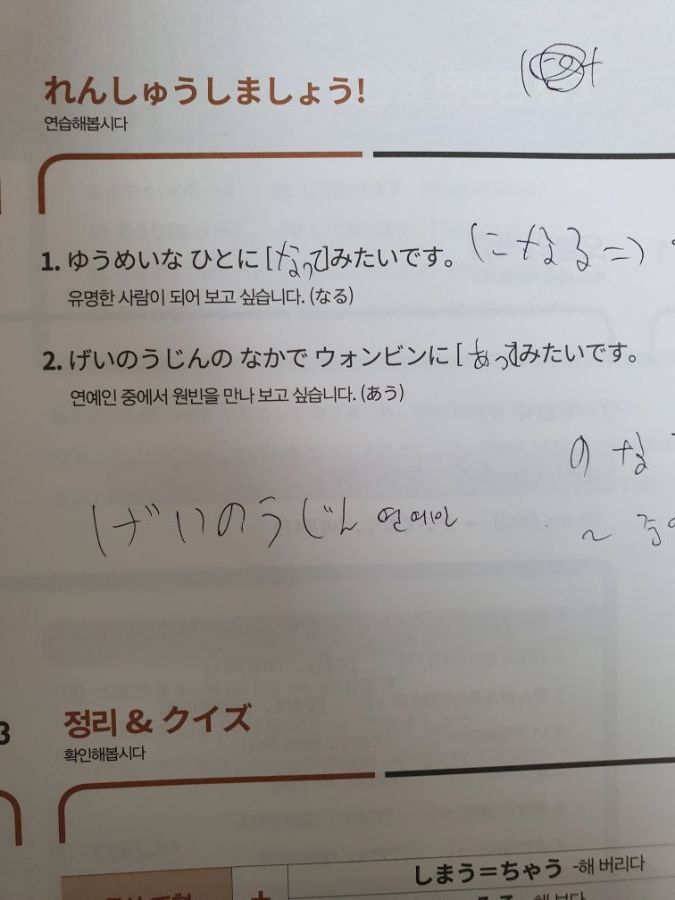 れんしゅうしましょう!
연습해봅시다
1. ゆうめいな ひとに [なって]みたいです。 (になる=)
유명한 사람이 되어 보고 싶습니다. (なる)
2. げいのうじんの なかで ウォンビンに [あって]みたいです。
연예인 중에서 원빈을 만나 보고 싶습니다. (あう)
のな
げいのうじん 연예인
~ 중
3
정리 & クイズ
확인해봅시다
しまう=ちゃう -해 버리다